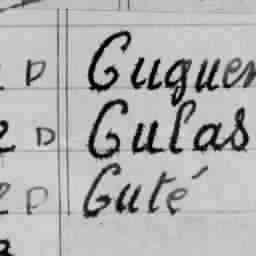 D Guguen
2 D Gulas
2 D Guté